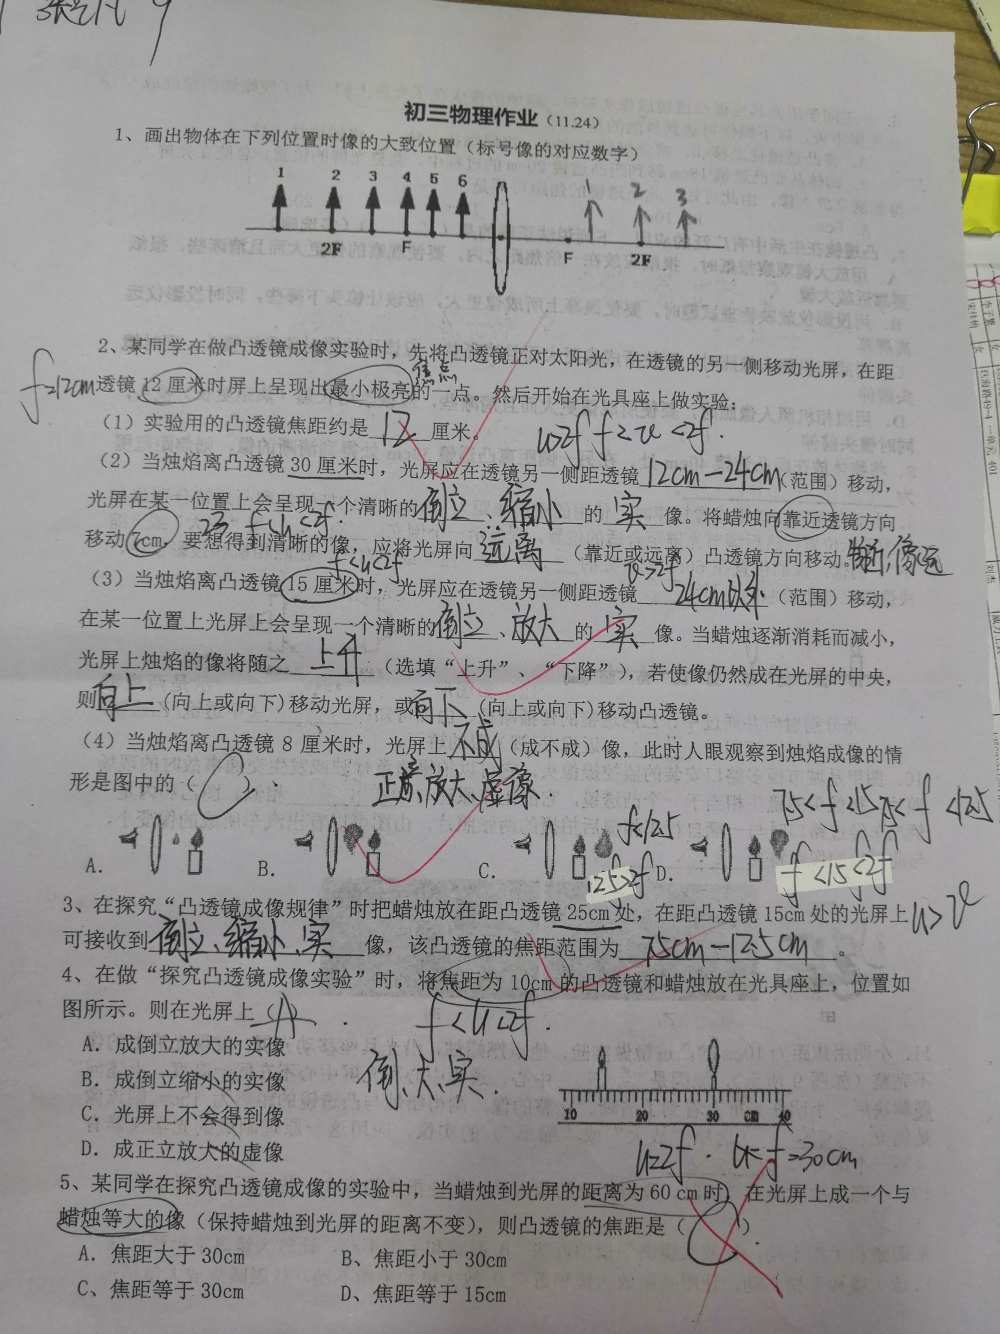 初三物理作业（11.24）
1、画出物体在下列位置时像的大致位置（标号像的对应数字）
1 2 3 4 5 6 1 2 3
2F F F 2F
2、某同学在做凸透镜成像实验时，先将凸透镜正对太阳光，在透镜的另一侧移动光屏，在距
f=12cm 透镜 12 厘米时屏上呈现出最小极亮的一点。然后开始在光具座上做实验：
焦点
（1）实验用的凸透镜焦距约是 12 厘米。
u>2f f<v<2f.
（2）当烛焰离凸透镜 30 厘米时，光屏应在透镜另一侧距透镜 12cm—24cm (范围）移动，
光屏在某一位置上会呈现一个清晰的 倒立 、缩小 的 实 像。将蜡烛向靠近透镜方向
23 f<u<2f.
移动 7cm，要想得到清晰的像，应将光屏向 远离 （靠近或远离）凸透镜方向移动。
f<u<2f v>2f
（3）当烛焰离凸透镜 15 厘米时，光屏应在透镜另一侧距透镜 24cm以外 （范围）移动，
在某一位置上光屏上会呈现一个清晰的 倒立 、放大 的 实 像。当蜡烛逐渐消耗而减小，
光屏上烛焰的像将随之 上升 （选填“上升”、“下降”），若使像仍然成在光屏的中央，
则 向上 (向上或向下)移动光屏，或 向下 (向上或向下)移动凸透镜。
（4）当烛焰离凸透镜 8 厘米时，光屏上 不成 （成不成）像，此时人眼观察到烛焰成像的情
形是图中的（ C ）、
正立、放大、虚像.
7.5<f<15 7.5<f<12.5
f<12.5
A. B. C. D.
12.5>2f f<15<2f
3、在探究“凸透镜成像规律”时把蜡烛放在距凸透镜 25cm 处，在距凸透镜 15cm 处的光屏上
u>v
可接收到 倒立、缩小、实 像，该凸透镜的焦距范围为 7.5cm—12.5cm 。
4、在做“探究凸透镜成像实验”时，将焦距为 10cm 的凸透镜和蜡烛放在光具座上，位置如
图所示。则在光屏上（ A ）.
f<u<2f.
A．成倒立放大的实像
B．成倒立缩小的实像
倒、大、实
C．光屏上不会得到像
10 20 30 cm 40
D．成正立放大的虚像
u=2f.
=30cm
5、某同学在探究凸透镜成像的实验中，当蜡烛到光屏的距离为 60 cm 时，在光屏上成一个与
蜡烛等大的像（保持蜡烛到光屏的距离不变），则凸透镜的焦距是（ C ）.
A．焦距大于 30cm B、焦距小于 30cm
C、焦距等于 30cm D、焦距等于 15cm